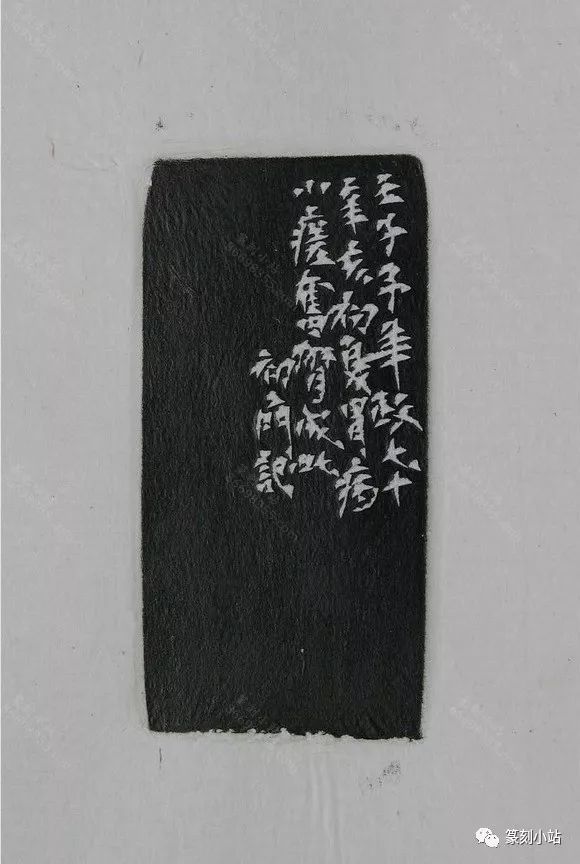 壬子予年政七十
辛亥初夏胃病
小瘥奮臂成此
初記
篆刻小站